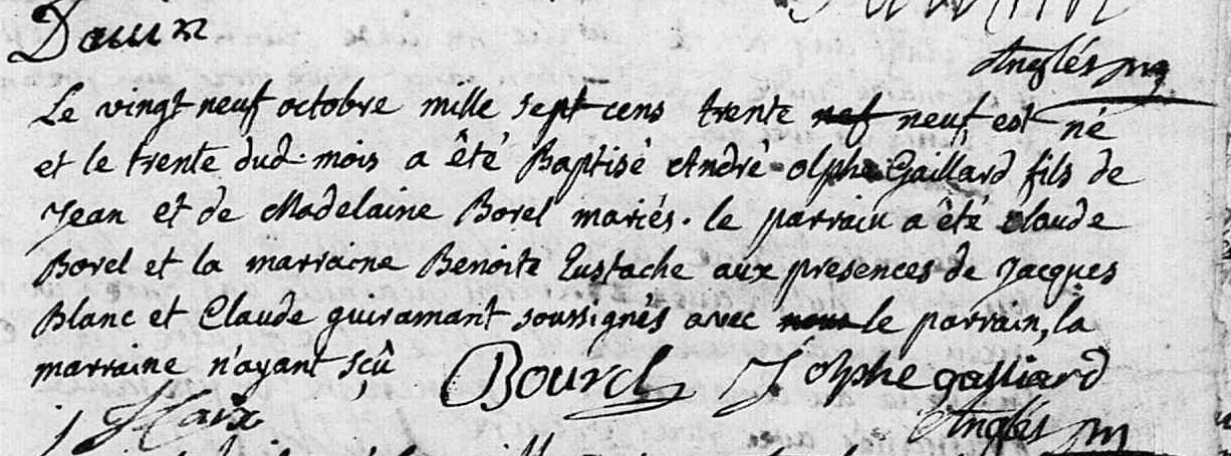 Anglés
Le vingt neuf octobre mille sept cens trente nef neuf est né
et le trente dud. mois a êté Baptisé André olphe Gaillard fils de
Jean et de Madelaine Borel mariés. le parrain a êté claude
Borel et la marraine Benoite Eustache aux presences de Jacques
Blanc et Claude guiramant soussignés avec nous le parrain, la
marraine n'ayant sçû Bourel J olphe galliard
j Anglés